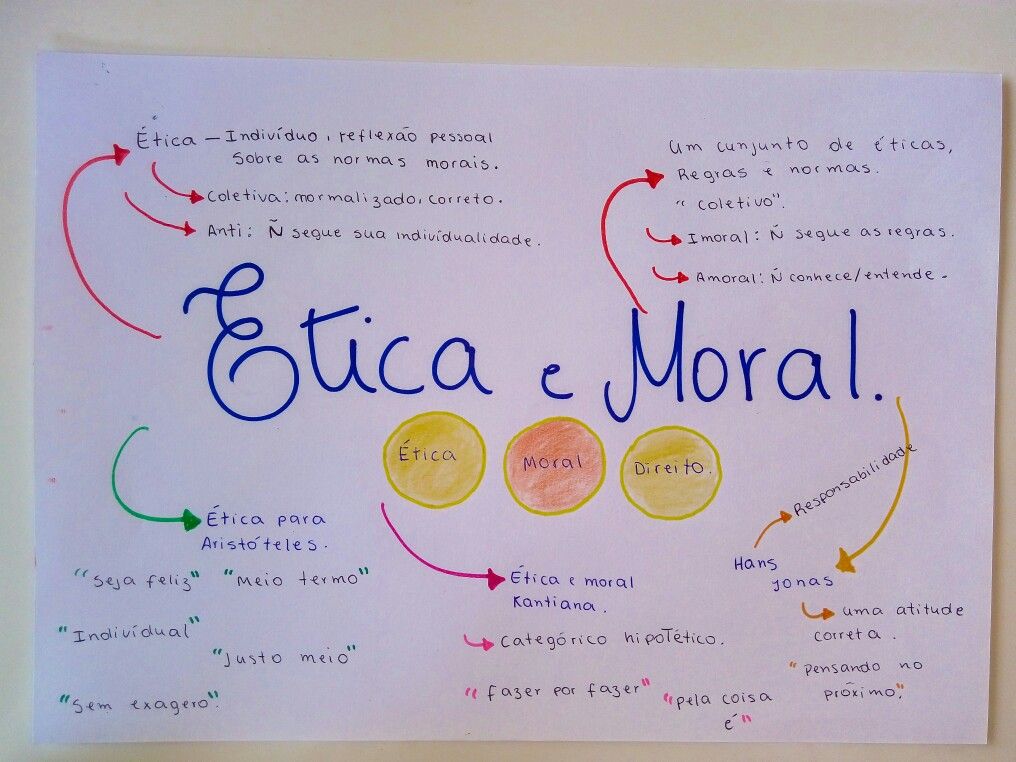 Ética — Indivíduo, reflexão pessoal
sobre as normas morais.
Coletiva: normalizado, correto.
Anti: Ñ segue sua individualidade.
Um cunjunto de éticas,
Regras e normas.
"coletivo".
Imoral: Ñ segue as regras.
Amoral: Ñ conhece/entende.
Ética e Moral.
Ética
Moral
Direito.
Ética para
Aristóteles.
"Seja feliz"
"Meio termo"
"Indivídual"
"Justo meio"
"Sem exagero".
Ética e moral
Kantiana.
Categórico hipotético.
"fazer por fazer"
"pela coisa
é"
Responsabilidade
Hans
Jonas
uma atitude
correta.
"pensando no
próximo."